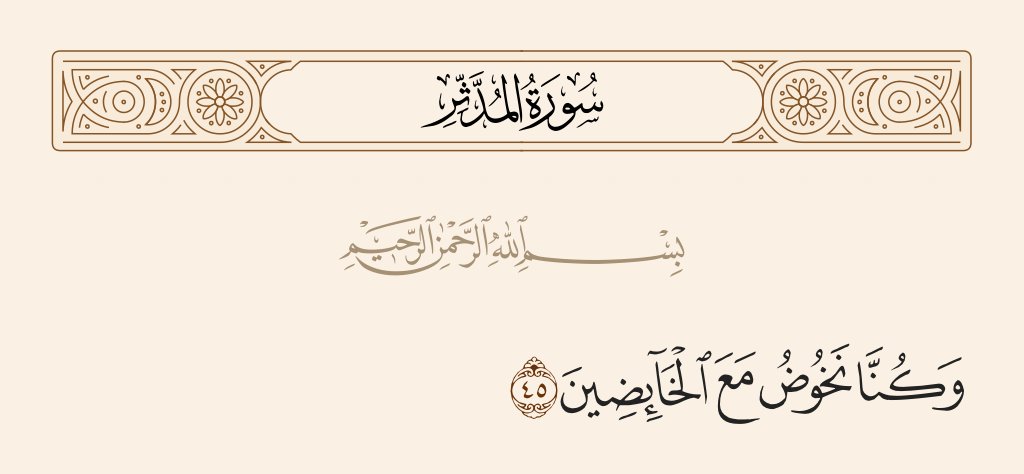 سُورَةُ المُدَّثِّرِ
بِسْمِ ٱللَّهِ ٱلرَّحْمَٰنِ ٱلرَّحِيمِ
وَكُنَّا نَخُوضُ مَعَ ٱلْخَآئِضِينَ ٤٥